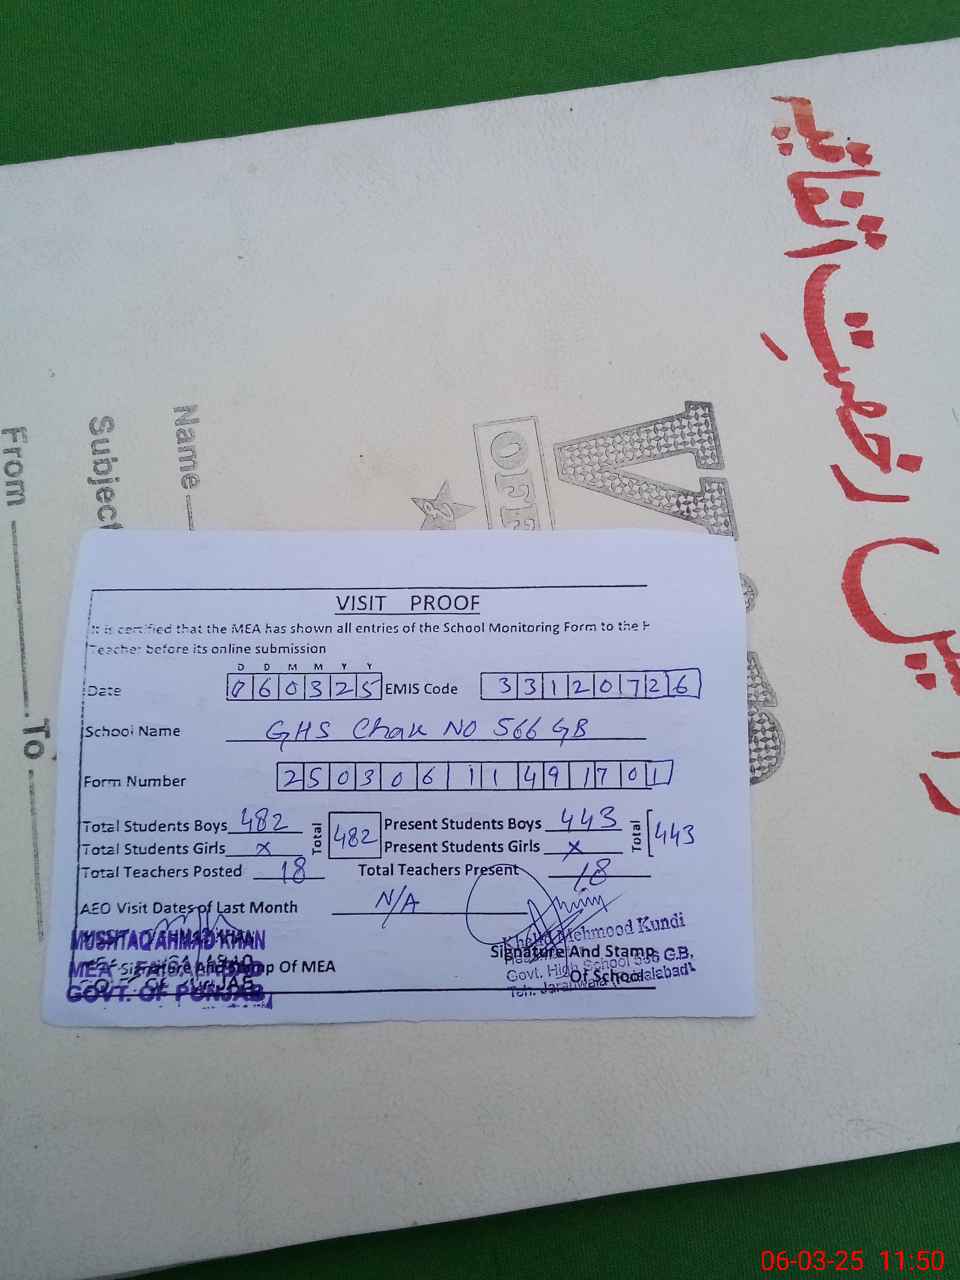 رجسٹر رخصتِ اتفاقیہ
OFFICE
Name
Subject
From To
VISIT PROOF
It is certified that the MEA has shown all entries of the School Monitoring Form to the H
Teacher before its online submission
D D M M Y Y
Date 060325 EMIS Code 33120726
School Name GHS Chak NO 566 GB
Form Number 250306 11491701
Total Students Boys 482 Total 482 Present Students Boys 443 Total 443
Total Students Girls x Present Students Girls x
Total Teachers Posted 18 Total Teachers Present 18
AEO Visit Dates of Last Month N/A
MUSHTAQ AHMAD KHAN
MEA
GOVT. OF PUNJAB,
Signature And Stamp Of MEA
Khalid Mehmood Kundi
Signature And Stamp
Govt. High School 566 G.B,
Of School
Teh. Jaranwala (Faisalabad)
06-03-25 11:50